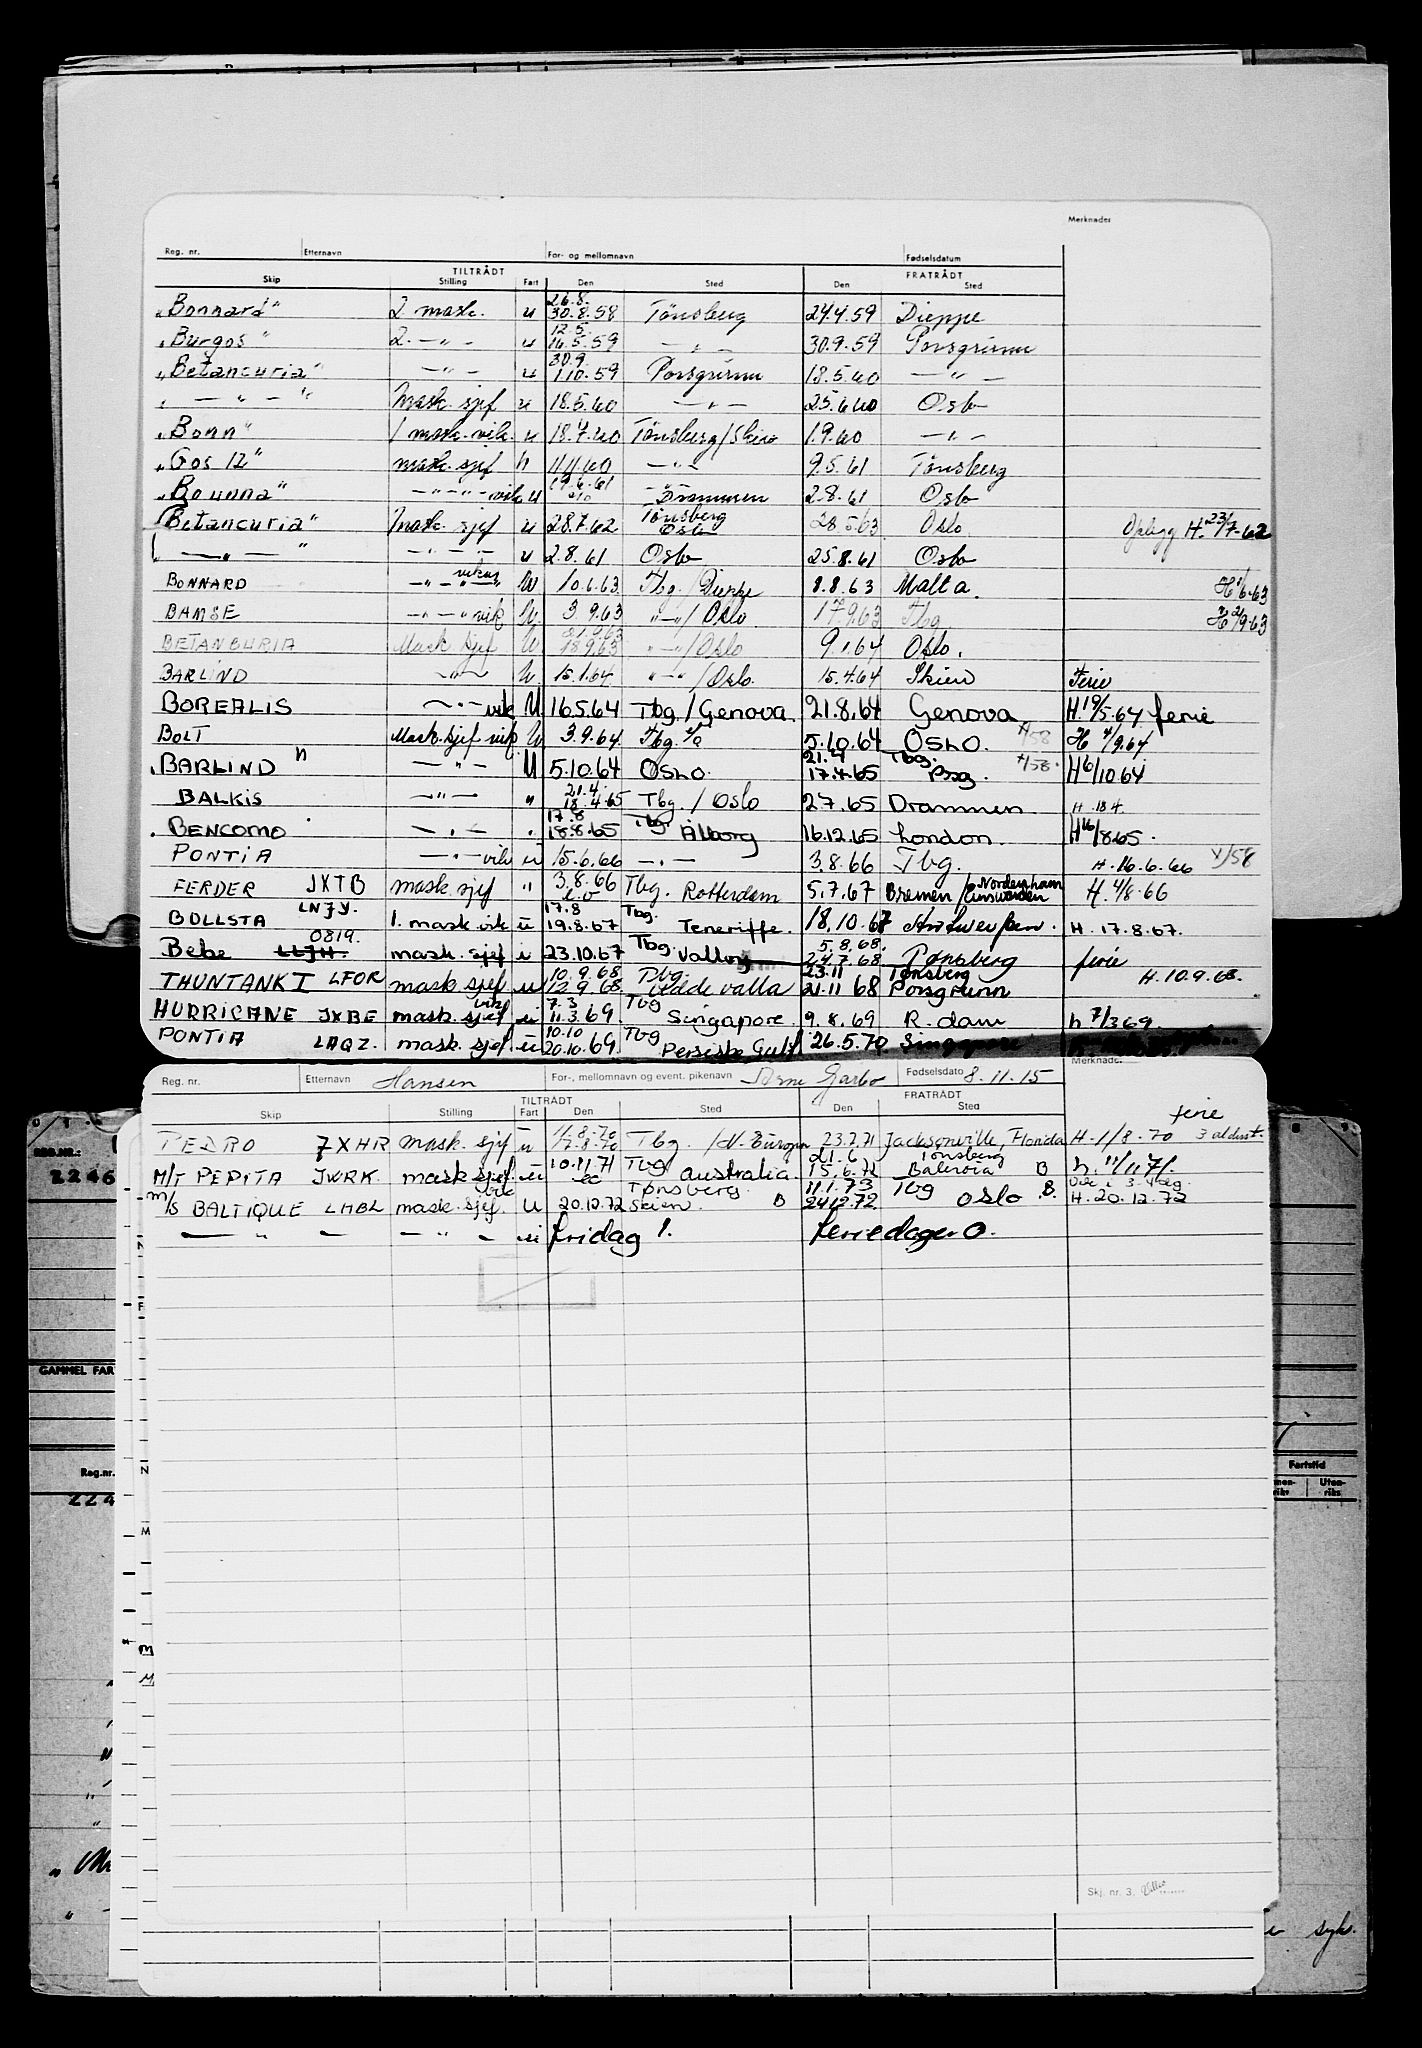 Merknader
Reg. nr. Etternavn For- og mellomnavn Fødselsdatum
TILTRÅDT FRATRÅDT
Skip Stilling Fart Den Sted Den Sted
26.8.
„Bonnard" 2 mask. u 30.8.58 Tönsberg 24.4.59 Dieppe
12.5.
„Burgos" 2. — " — u 16.5.59 — " — 30.9.59 Porsgrunn
30.9
„Betancuria" — " — u 1.10.59 Porsgrunn 18.5.60 — " —
„ — " — " Mask. sjef u 18.5.60 — " — 25.6.60 Oslo
„Bonn" 1 mask. vik. u 18.7.60 Tönsberg/Skien 1.9.60 — " —
„Gos 12" mask. sjef h 11.11.60 — " — 9.5.61 Tönsberg
19.6.61
„Bounna" — " — " — vik u Drammen 2.8.61 Oslo
Tönsberg
„Betancuria" Mask. sjef u 28.7.62 Oslo 28.5.63 Oslo Opplegg H. 23/7-62
— " — " — " — " — u 2.8.61 Oslo 25.8.61 Oslo
BONNARD — " — " — vikar U 10.6.63 Tbg./Dieppe 8.8.63 Malta. H 1/6-63
BAMSE — " — " vik U 3.9.63 " — " / Oslo 17.9.63 Tbg H 2/9-63
21.9.63
BETANCURIA Mask sjef U 18.9.63 " — " / Oslo 9.1.64 Oslo.
BARLIND — " — U 15.1.64 " — " / Oslo. 15.4.64 Skien Ferie
BOREALIS — " — vik U 16.5.64 Tbg. / Genova. 21.8.64 Genova H.19/5-64 ferie
BOLT Mask. sjef vik U 3.9.64 Tbg. 5.10.64 OSLO. H/58 H 4/9.64
21.4 Tbg.
BARLIND " — " — U 5.10.64 OSLO. 17.4.65 Prsg. H/58. H6/10 64
21.4.
BALKIS — " — " 18.4.65 Tbg. / Oslo 2.7.65 Drammen H. 18 4.
17.8
BENCOMO — " — " 18.8.65 Tbg. Ålborg 16.12.65 London. H16/8.65.
PONTIA — " — vik ú 15.6.66 — " — 3.8.66 Tbg. H. 16.6.66 V/58
FERDER JXTB mask. sjef " 3.8.66 Tbg. Rotterdam 5.7.67 Bremen / Nordenham H. 4/8.66
LNJY. 17.8 Tbg.
BOLLSTA 1. mask. vik ú 19.8.67 Teneriffe. 18.10.67 Antwerpen. H. 17.8.67.
0819. 5.8.68.
Bebe LLJH. mask. sjef ú 23.10.67 Tbg. Valløy 24.7.68 Tønsberg ferie
10.9.68 Tbg. 23.11 Tønsberg
THUNTANK I LFOR mask sjef u 12.9.68. Udde valla 21.11 68 Porsgrunn H. 10.9.68.
vik 7.3 Tbg
HURRICANE JXBE mask. sjef ú 11.3.69. Singapore. 9.8.69 R. dam h 7/3 69.
10.10 Tbg
PONTIA LAQZ. mask. sjef ú 20.10.69 Persiske Gulf 26.5.70 Singapore
Merknader
Reg. nr. Etternavn Hansen For-, mellomnavn og event. pikenavn Arne Garbo Fødselsdato 8.11.15
TILTRÅDT FRATRÅDT
Skip Stilling Fart Den Sted Den Sted
11.8.70 ferie
PEDRO JXHR mask. sjef ú 17.8.70 Tbg. / N. Europa 23.2.71 Jacksonville, Florida H. 11/8.70
21.6 Tønsberg
M/T PEPITA JWRK. mask. sjef. ú 10.11.71 Tbg australia. 15.6.72 B h. 11/11 71.
vik Tønsberg. 11.1.73 Tbg
M/S BALTIQUE LMBL mask. sjef. U 20.12.72 Skien. B 24.12.72 Oslo B. H. 20.12.72
— " — — " — ú fridag 1. feriedager 0.
REG.NR.:
2246
GAMMEL FAR
Reg.nr.
224
Fartstid
Uten-
riks
Skj. nr. 3.
syk.